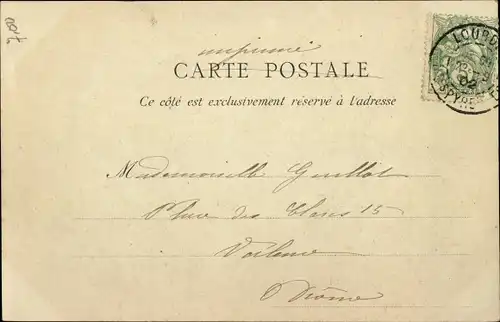 imprimé
CARTE POSTALE
Ce côté est exclusivement réservé à l'adresse
LOURD
02
Mademoiselle Guillot
Place des Clercs 15
Valence
Drôme